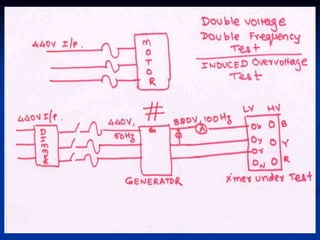 Double voltage
Double Frequency
Test
INDUCED Overvoltage
Test
440V I/P.
MOTOR
#
440V I/P.
440V,
50Hz
G
880V, 100Hz
A
LV HV
Ob O B
Oy O Y
Or O R
ON
GENERATOR
X'mer under Test